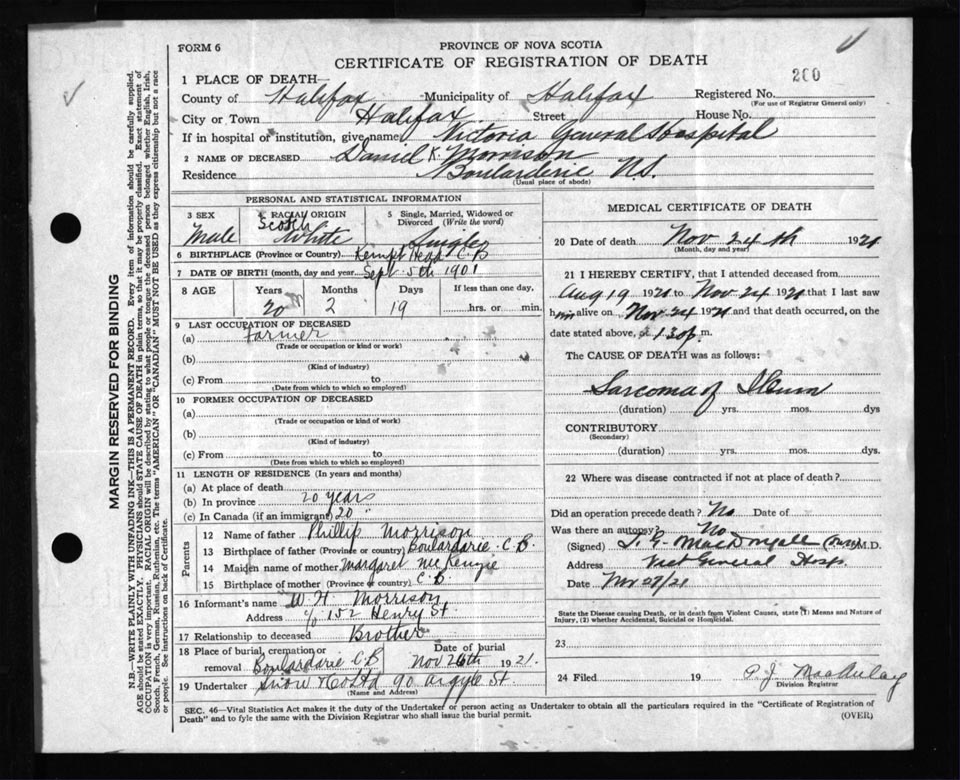 FORM 6
PROVINCE OF NOVA SCOTIA
CERTIFICATE OF REGISTRATION OF DEATH
200
1 PLACE OF DEATH
County of Halifax Municipality of Halifax Registered No.
(For use of Registrar General only)
City or Town Halifax Street House No.
If in hospital or institution, give name Victoria General Hospital
2 NAME OF DECEASED Daniel K. Morrison
Residence Boularderie N.S.
(Usual place of abode)
PERSONAL AND STATISTICAL INFORMATION
3 SEX Male
4 RACIAL ORIGIN Scotch White
5 Single, Married, Widowed or Divorced (Write the word) Single
6 BIRTHPLACE (Province or Country) Kempt Head C.B
7 DATE OF BIRTH (month, day and year) Sept. 5th 1901
8 AGE Years 20 Months 2 Days 19 If less than one day, hrs. or min.
9 LAST OCCUPATION OF DECEASED
(a) Farmer
(Trade or occupation or kind or work)
(b)
(Kind of industry)
(c) From to
(Date from which to which so employed)
10 FORMER OCCUPATION OF DECEASED
(a)
(Trade or occupation or kind or work)
(b)
(Kind of industry)
(c) From to
(Date from which to which so employed)
11 LENGTH OF RESIDENCE (In years and months)
(a) At place of death
(b) In province 20 years
(c) In Canada (if an immigrant) 20 "
Parents
12 Name of father Phillip Morrison
13 Birthplace of father (Province or country) Boulardarie C.B.
14 Maiden name of mother Margaret McKenzie
15 Birthplace of mother (Province or country) C.B.
16 Informant's name W. H. Morrison
Address c/o 152 Henry St.
17 Relationship to deceased Brother
18 Place of burial, cremation or removal Boulardarie C.B Date of burial Nov 26th 1921.
19 Undertaker Snow & Co Ltd 90 Argyle St.
(Name and Address)
MEDICAL CERTIFICATE OF DEATH
20 Date of death Nov 24th 1921
(Month, day and year)
21 I HEREBY CERTIFY, that I attended deceased from
Aug 19 1921 to Nov 24 1921 that I last saw
him alive on Nov 24 1921 and that death occurred, on the
date stated above, at 1.30 p. m.
The CAUSE OF DEATH was as follows:
Sarcoma of Ileum
(duration) yrs. mos. dys
CONTRIBUTORY
(Secondary)
(duration) yrs. mos. dys.
22 Where was disease contracted if not at place of death?
Did an operation precede death? No Date of
Was there an autopsy? No
(Signed) MacDougall M.D.
Address Vict General Hosp.
Date Nov 28/21
State the Disease causing Death, or in death from Violent Causes, state (1) Means and Nature of
Injury, (2) whether Accidental, Suicidal or Homicidal.
23
24 Filed 19 P. J. MacAulay
Division Registrar
SEC. 46—Vital Statistics Act makes it the duty of the Undertaker or person acting as Undertaker to obtain all the particulars required in the "Certificate of Registration of
Death" and to fyle the same with the Division Registrar who shall issue the burial permit.
(OVER)
MARGIN RESERVED FOR BINDING
N.B.—WRITE PLAINLY WITH UNFADING INK—THIS IS A PERMANENT RECORD. Every item of information should be carefully supplied.
AGE should be stated EXACTLY. PHYSICIANS should STATE CAUSE OF DEATH in plain terms, so that it may be properly classified. Exact statement of
OCCUPATION is very important. RACIAL ORIGIN will be described by stating to what people or tongue the deceased person belonged whether English, Irish,
Scotch, French, German, Russian, Ruthenian, etc. The terms "AMERICAN" OR "CANADIAN" MUST NOT BE USED as they express citizenship but not a race
or people. See instructions on back of Certificate.